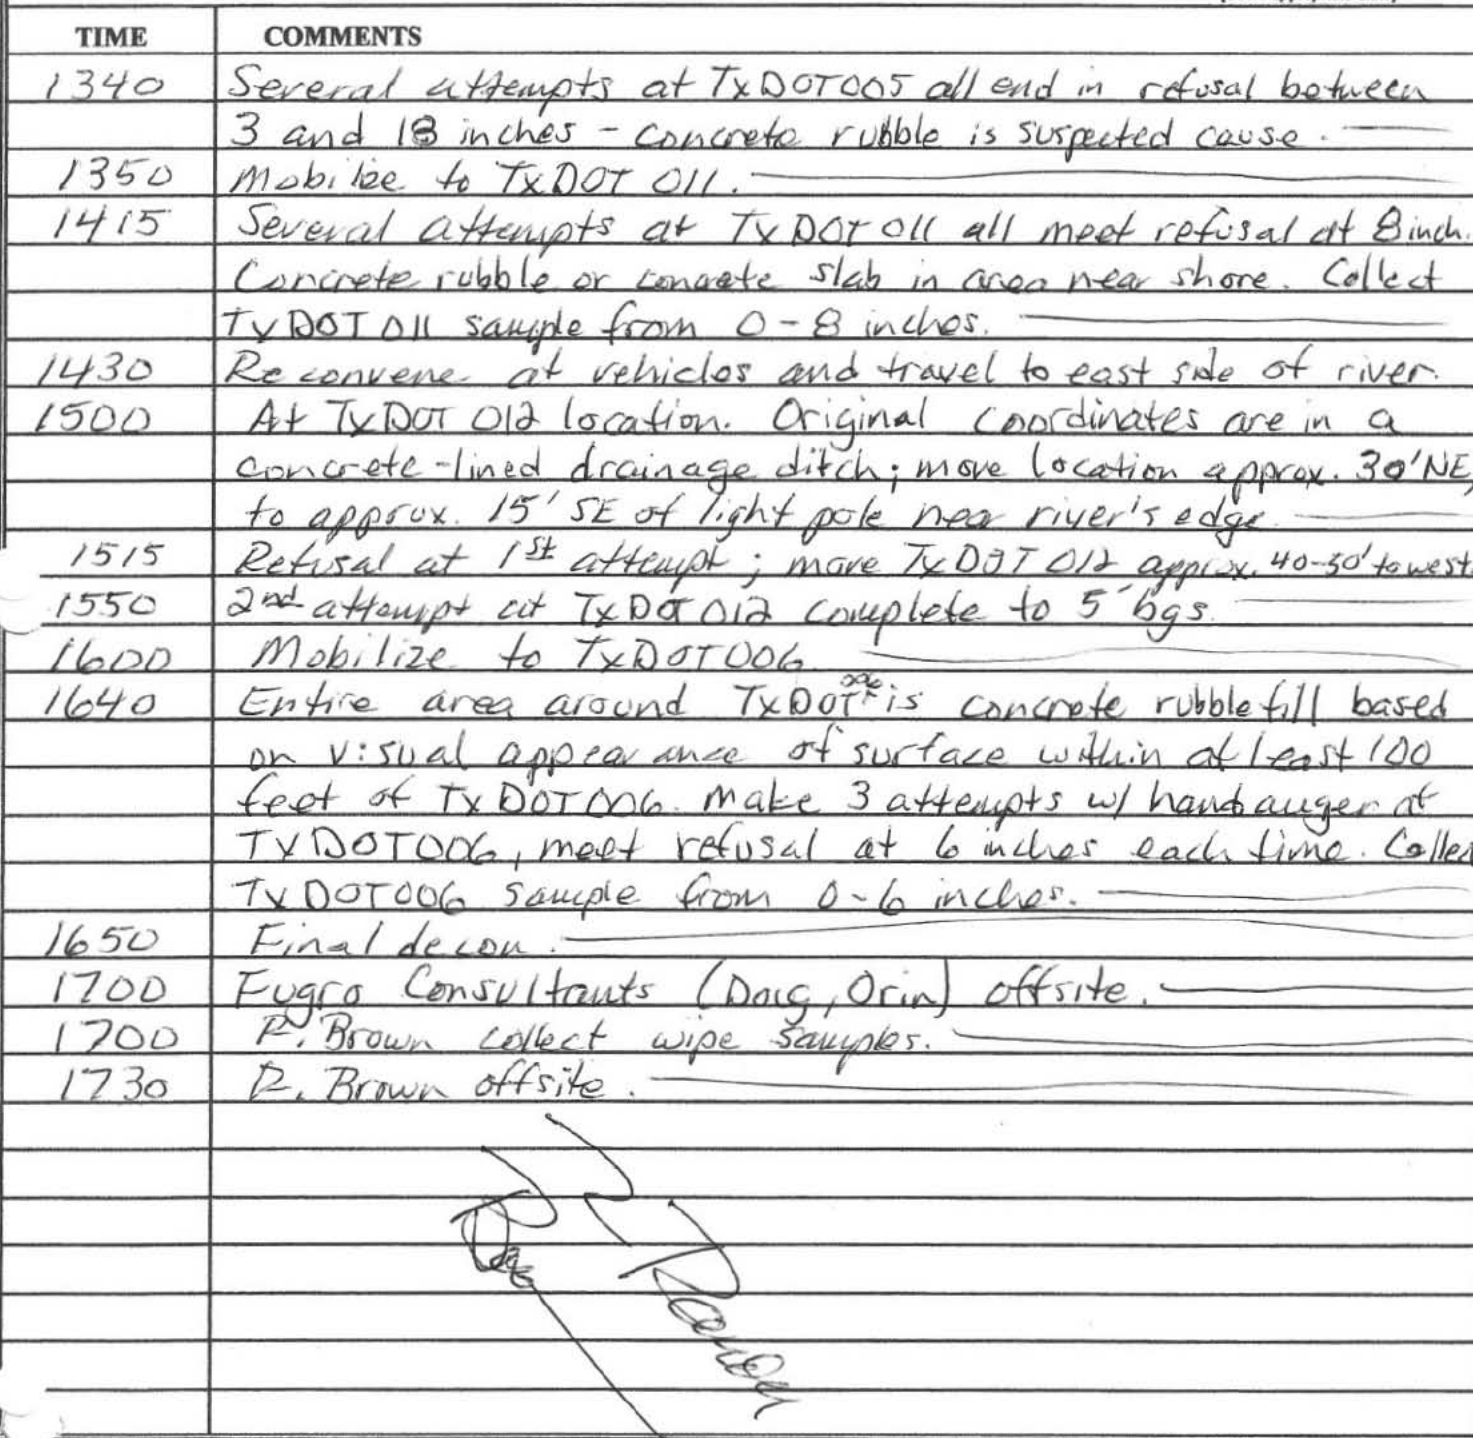 TIME COMMENTS
1340 Several attempts at TxDOT005 all end in refusal between
3 and 18 inches - concrete rubble is suspected cause.
1350 Mobilize to TxDOT 011.
1415 Several attempts at TxDOT 011 all meet refusal at 8 inch.
Concrete rubble or concrete slab in area near shore. Collect
TxDOT 011 sample from 0-8 inches.
1430 Reconvene at vehicles and travel to east side of river.
1500 At TxDOT 012 location. Original coordinates are in a
concrete-lined drainage ditch; move location approx. 30' NE,
to approx. 15' SE of light pole near river's edge.
1515 Refusal at 1st attempt; move TxDOT 012 approx. 40-50' to west.
1550 2nd attempt at TxDOT 012 complete to 5' bgs.
1600 Mobilize to TxDOT006
1640 Entire area around TxDOT 006 is concrete rubble fill based
on visual appearance of surface within at least 100
feet of TxDOT006. Make 3 attempts w/ hand auger at
TxDOT006, meet refusal at 6 inches each time. Collec
TxDOT006 sample from 0-6 inches.
1650 Final decon.
1700 Fugro Consultants (Doug, Orin) offsite.
1700 R. Brown collect wipe samples.
1730 R. Brown offsite.